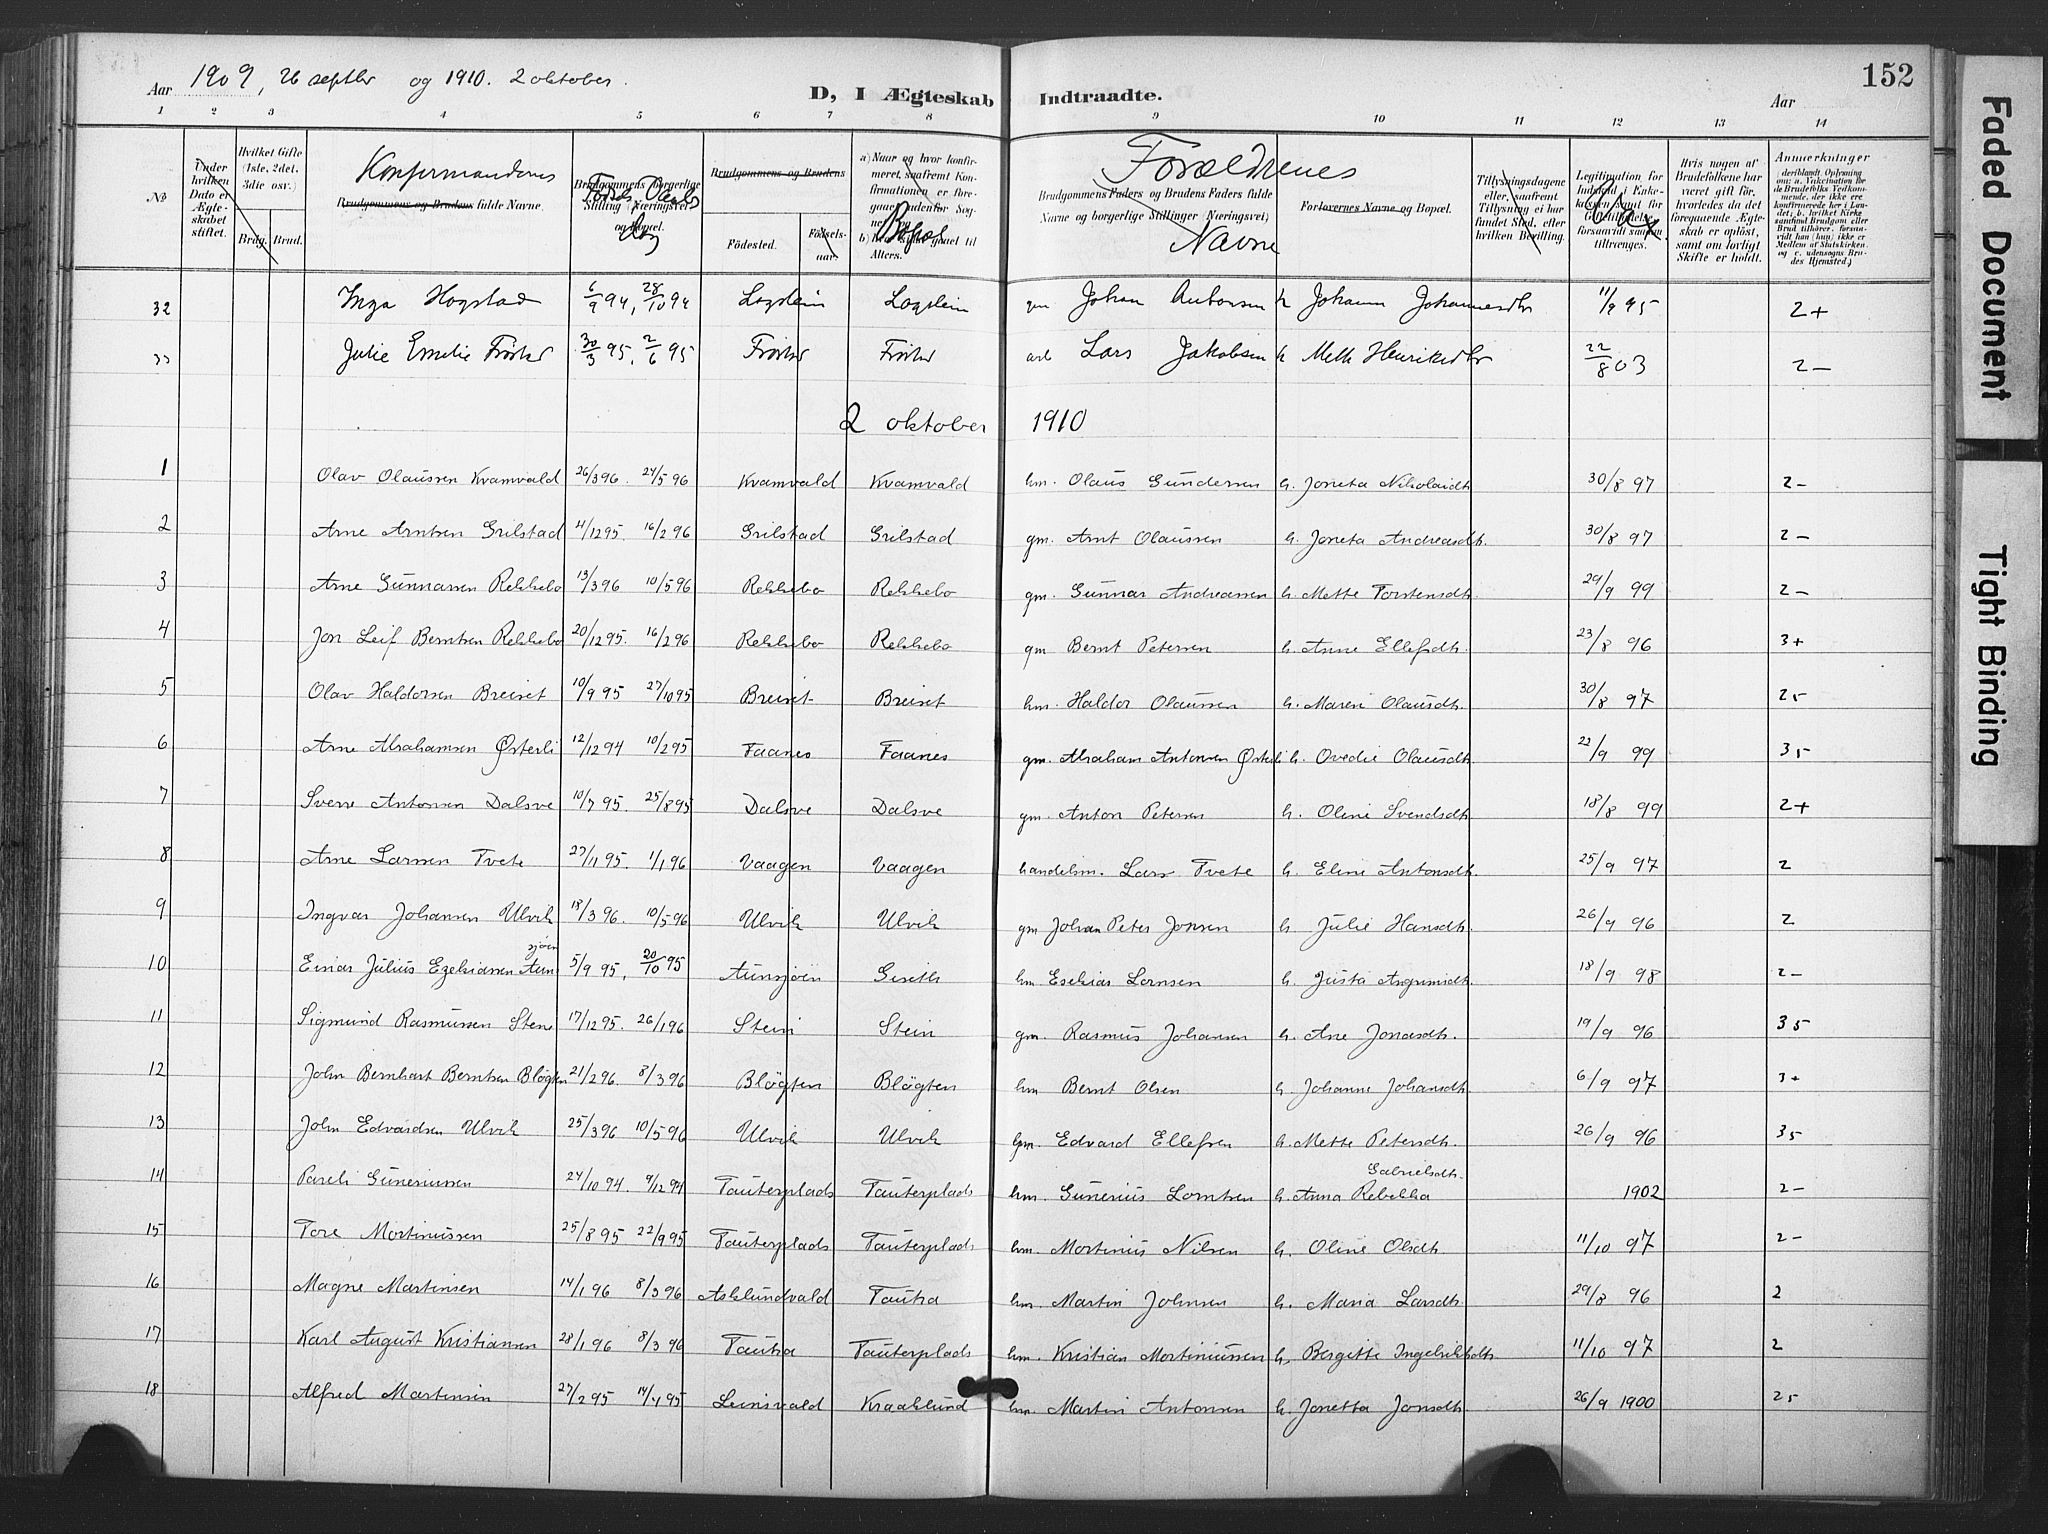 Aar 1909, 26 septbr og 1910. 2 oktober.
D, I Ægteskab Indtraadte.
Aar
152
1 2 3 4 5 6 7 8 9 10 11 12 13 14
No
Under hvilken Dato er Ægteskabet stiftet.
Hvilket Gifte (1ste, 2det, 3die osv.)
Brdg. Brud.
Konfirmandernes
Brudgommens og Brudens fulde Navne.
Brudgommens borgerlige Stilling (Næringsvei) og Bopæl.
Fødsels Daabs
Dag
Brudgommens og Brudens
Födested. Födselsaar.
Bopæl
Forældrenes
Brudgommens Faders og Brudens Faders fulde Navne og borgerlige Stillinger (Næringsvei)
Navne
Forlovernes Navne og Bopæl.
Tillysningsdagene eller, saafremt Tillysning ei har fundet Sted, efter hvilken Bevilling.
Vax
Hvis nogen af Brudefolkene har været gift för, hvorledes da det foregaaende Ægteskab er oplöst, samt om lovligt Skifte er holdt.
Anmærkninger
32 Inga Hogstad 6/9 94, 28/10 94 Logstein Logstein gm Johan Antonsen h Johanna Johannesdtr 11/9 95 2+
33 Julie Emelie Frøset 30/3 95, 2/6 95 Frøset Frøset arb Lars Jakobsen h Meth Henriksdtr 22/8 03 2—
2 oktober 1910
1 Olav Olaussen Kvamvald 26/3 96. 24/5 96 Kvamvald Kvamvald hm. Olaus Gundersen h. Joneta Nikolaidtr 30/8 97 2-
2 Arne Arntsen Grilstad 4/12 95. 16/2 96 Grilstad Grilstad gm. Arnt Olaussen h. Joneta Andreasdtr. 30/8 97 2-
3 Arne Gunnarsen Rekkebo 13/3 96 10/5 96 Rekkebo Rekkebo gm. Gunnar Andreassen h. Mette Torstensdtr. 29/9 99 2-
4 Jon Leif Berntsen Rekkebo 20/12 95. 16/2 96 Rekkebo Rekkebo gm Bernt Petersen h. Anne Ellefsdtr. 23/8 96 3+
5 Olav Haldorsen Breivet 10/9 95 27/10 95 Breivet Breivet hm. Haldor Olaussen h. Maren Olausdtr. 30/8 97 25
6 Arne Abrahamsen Østerli 12/12 94 10/2 95 Faanes Faanes gm. Abraham Antonsen Østerli h. Ovedie Olausdtr. 22/9 99 35
7 Sverre Antonsen Dalsve 10/7 95. 25/8 95 Dalsve Dalsve gm. Anton Petersen h. Oline Svendsdtr. 18/8 99 2+
8 Arne Larssen Tvete 27/11 95. 1/1 96 Vaagen Vaagen handelsm. Lars Tvete h. Eline Antonsdtr. 25/9 97 2
9 Ingvar Johansen Ulvik 18/3 96. 10/5 96 Ulvik Ulvik gm Johan Peter Jonsen h. Julie Hansdtr. 26/9 96 2
10 Einar Julius Ezekiassen Aunsjøen 5/9 95, 20/10 95 Aunsjøen hm Esekias Lornsen h. Justa Angrimsdtr. 18/9 98 2-
11 Sigmund Rasmussen Stene 17/12 95. 26/1 96 Stein Stein gm. Rasmus Johansen h. Ane Jonasdtr. 19/9 96 35
12 John Bernhart Berntsen Bløgten 21/2 96. 8/3 96 Bløgten Bløgten hm Bernt Olsen h. Johanne Johansdtr. 6/9 97 3+
13 John Edvardsen Ulvik 25/3 96 10/5 96 Ulvik Ulvik gm. Edvard Ellefsen h. Mette Petersdtr. 26/9 96 35
14 Pareli Guneriussen 24/10 94. 9/12 94 Tauterplads Tauterplads hm. Gunerius Lorntsen h. Anna Rebekka Gabrielsdtr. 1902 2-
15 Tore Mortinussen 25/8 95 22/9 95 Tauterplads Tauterplads hm. Mortinus Nilsen h. Oline Olsdtr. 11/10 97 2-
16 Magne Martinsen 14/1 96 8/3 96 Asklundvald Tautra hm. Martin Johnsen h. Maria Larsdtr. 29/8 96 2
17 Karl August Kristiansen 28/1 96 8/3 96 Tautra Tauterplads hm. Kristian Mortiniussen h. Bergitte Ingebrikbdtr. 11/10 97 2
18 Alfred Martinsen 27/2 95 14/4 95 Leinsvald Kraaklund hm. Martin Antonsen h. Jonetta Jonsdtr. 26/9 1900 25
Faded Document
Tight Binding